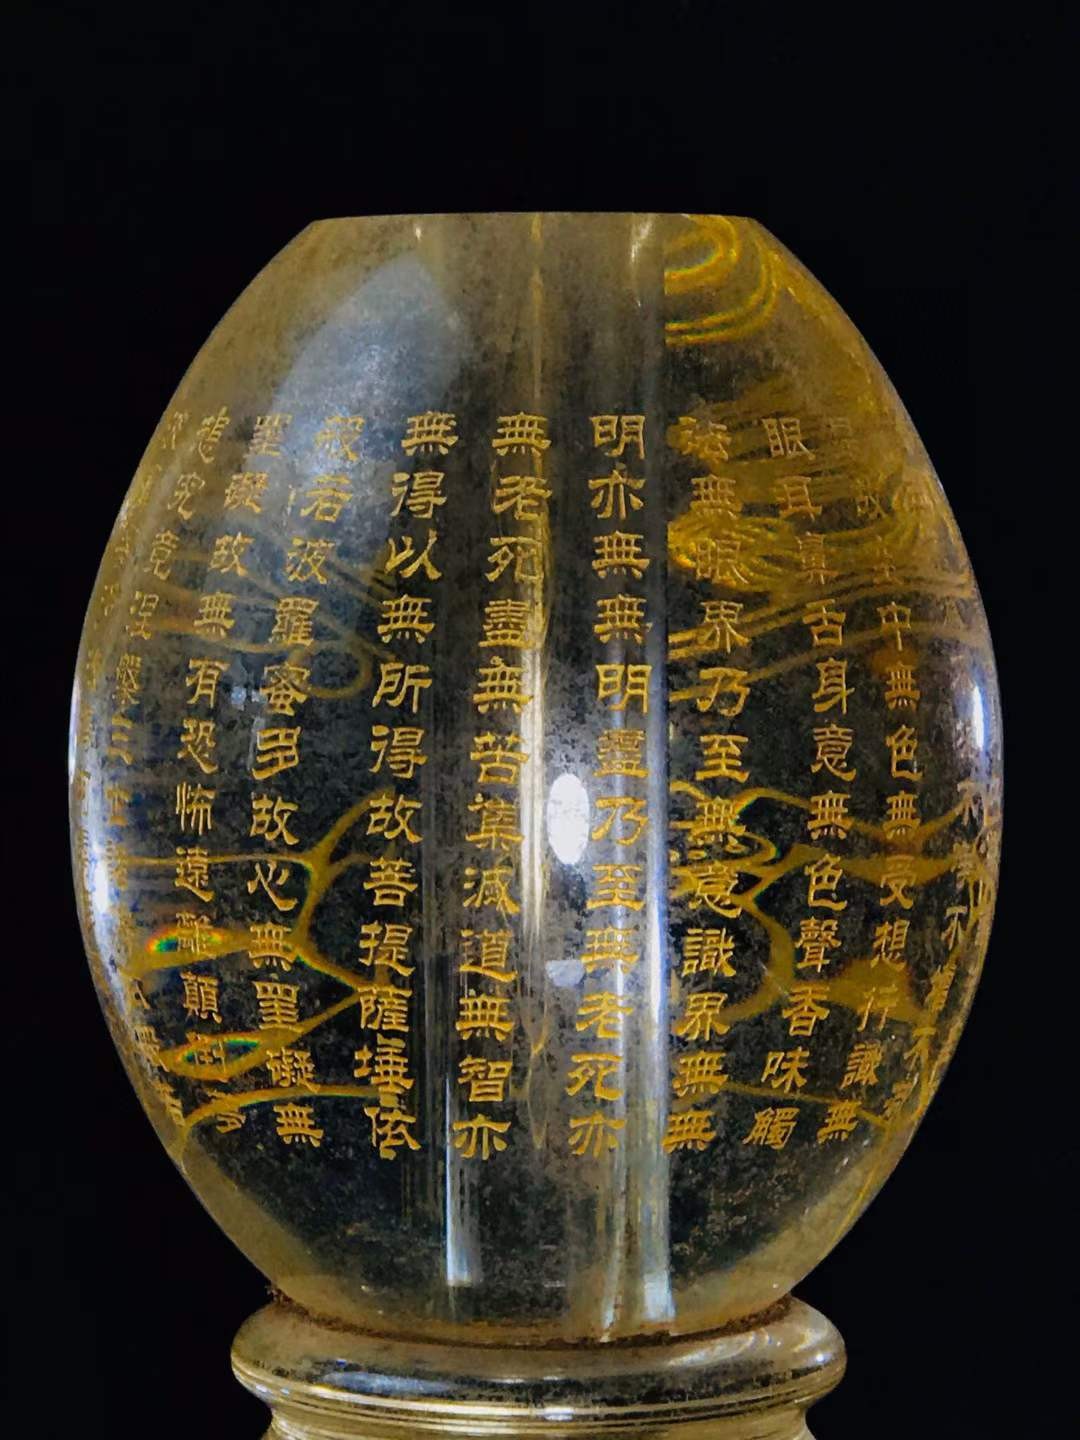 是故空中無色無受想行識無
眼耳鼻舌身意無色聲香味觸
法無眼界乃至無意識界無無
明亦無無明盡乃至無老死亦
無老死盡無苦集滅道無智亦
無得以無所得故菩提薩埵依
般若波羅蜜多故心無罣礙無
罣礙故無有恐怖遠離顛倒夢
想究竟涅槃三世